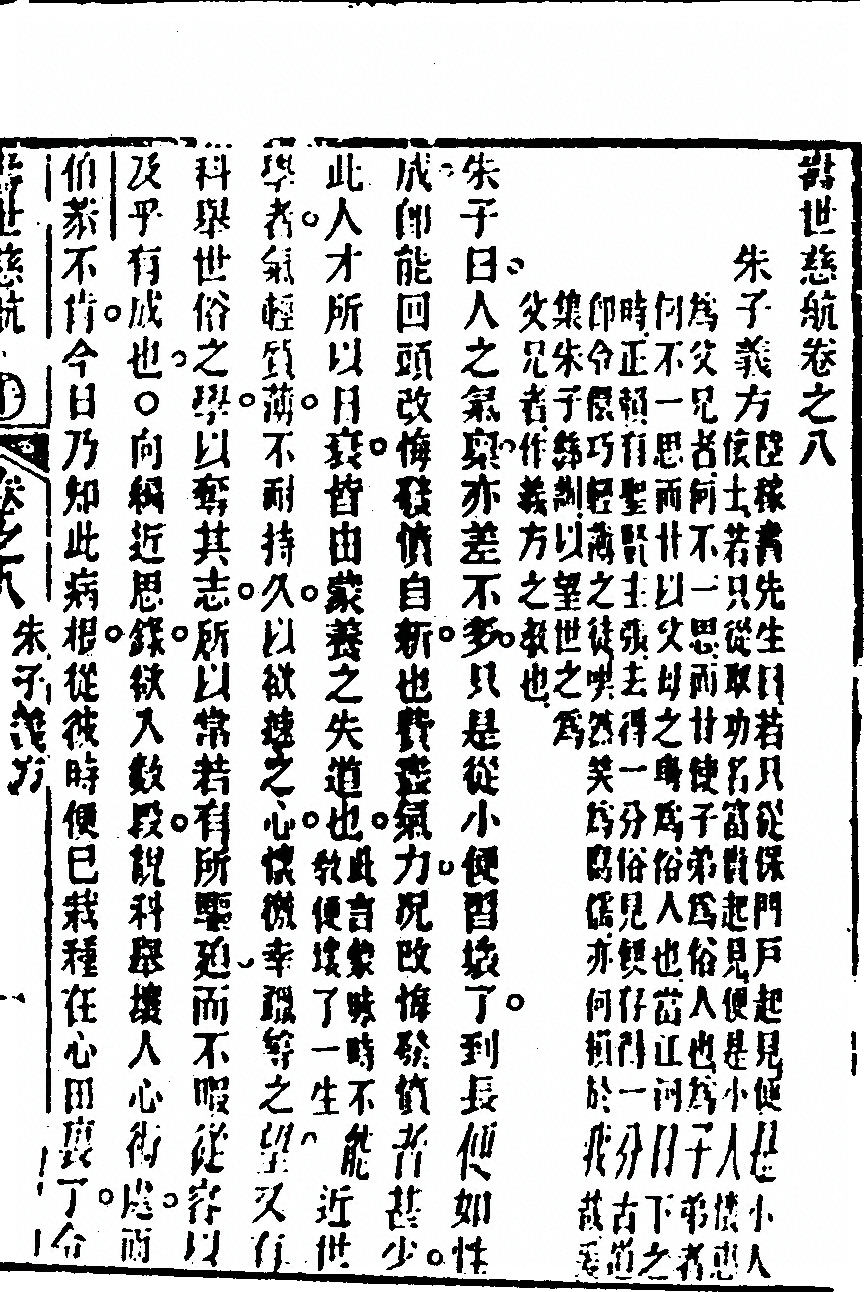 壽世慈航卷之八
朱子義方
陸稼書先生曰若只從保門戶起見便是小人
懷土若只從取功名富貴起見便是小人懷惠
為父兄者何不一思而甘使子弟為俗人也為子弟者
何不一思而甘以父母之身為俗人也當江河日下之
時正賴有聖賢主張去得一分俗見便存得一分古道
即令儇巧輕薄之徒哄然笑為腐儒亦何損於我哉爰
集朱子緒訓以望世之為
父兄者作義方之教也
朱子曰人之氣稟亦差不多只是從小便習壞了到長便如性
成即能回頭改悔發憤自新也費盡氣力況改悔發憤者甚少
此人才所以日衰皆由蒙養之失道也此言蒙昧時不能教便壞了一生近世
學者氣輕質薄不耐持久以欲速之心懷徼幸躐等之望又有
科舉世俗之學以奪其志所以常若有所驅迫而不暇從容以
及乎有成也○向編近思錄欲入數段說科舉壞人心術處而
伯恭不肯今日乃知此病根從彼時便已栽種在心田裏了令
壽世慈航
卷之八
朱子義方